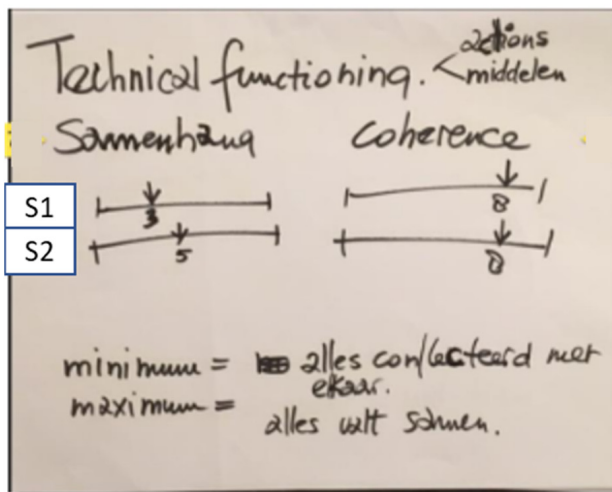 Technical functioning. < actions
middelen
Samenhang coherence
S1 3 8
S2 5 8
minimum = alles conflecteerd met
ekaar.
maximum =
alles valt samen.